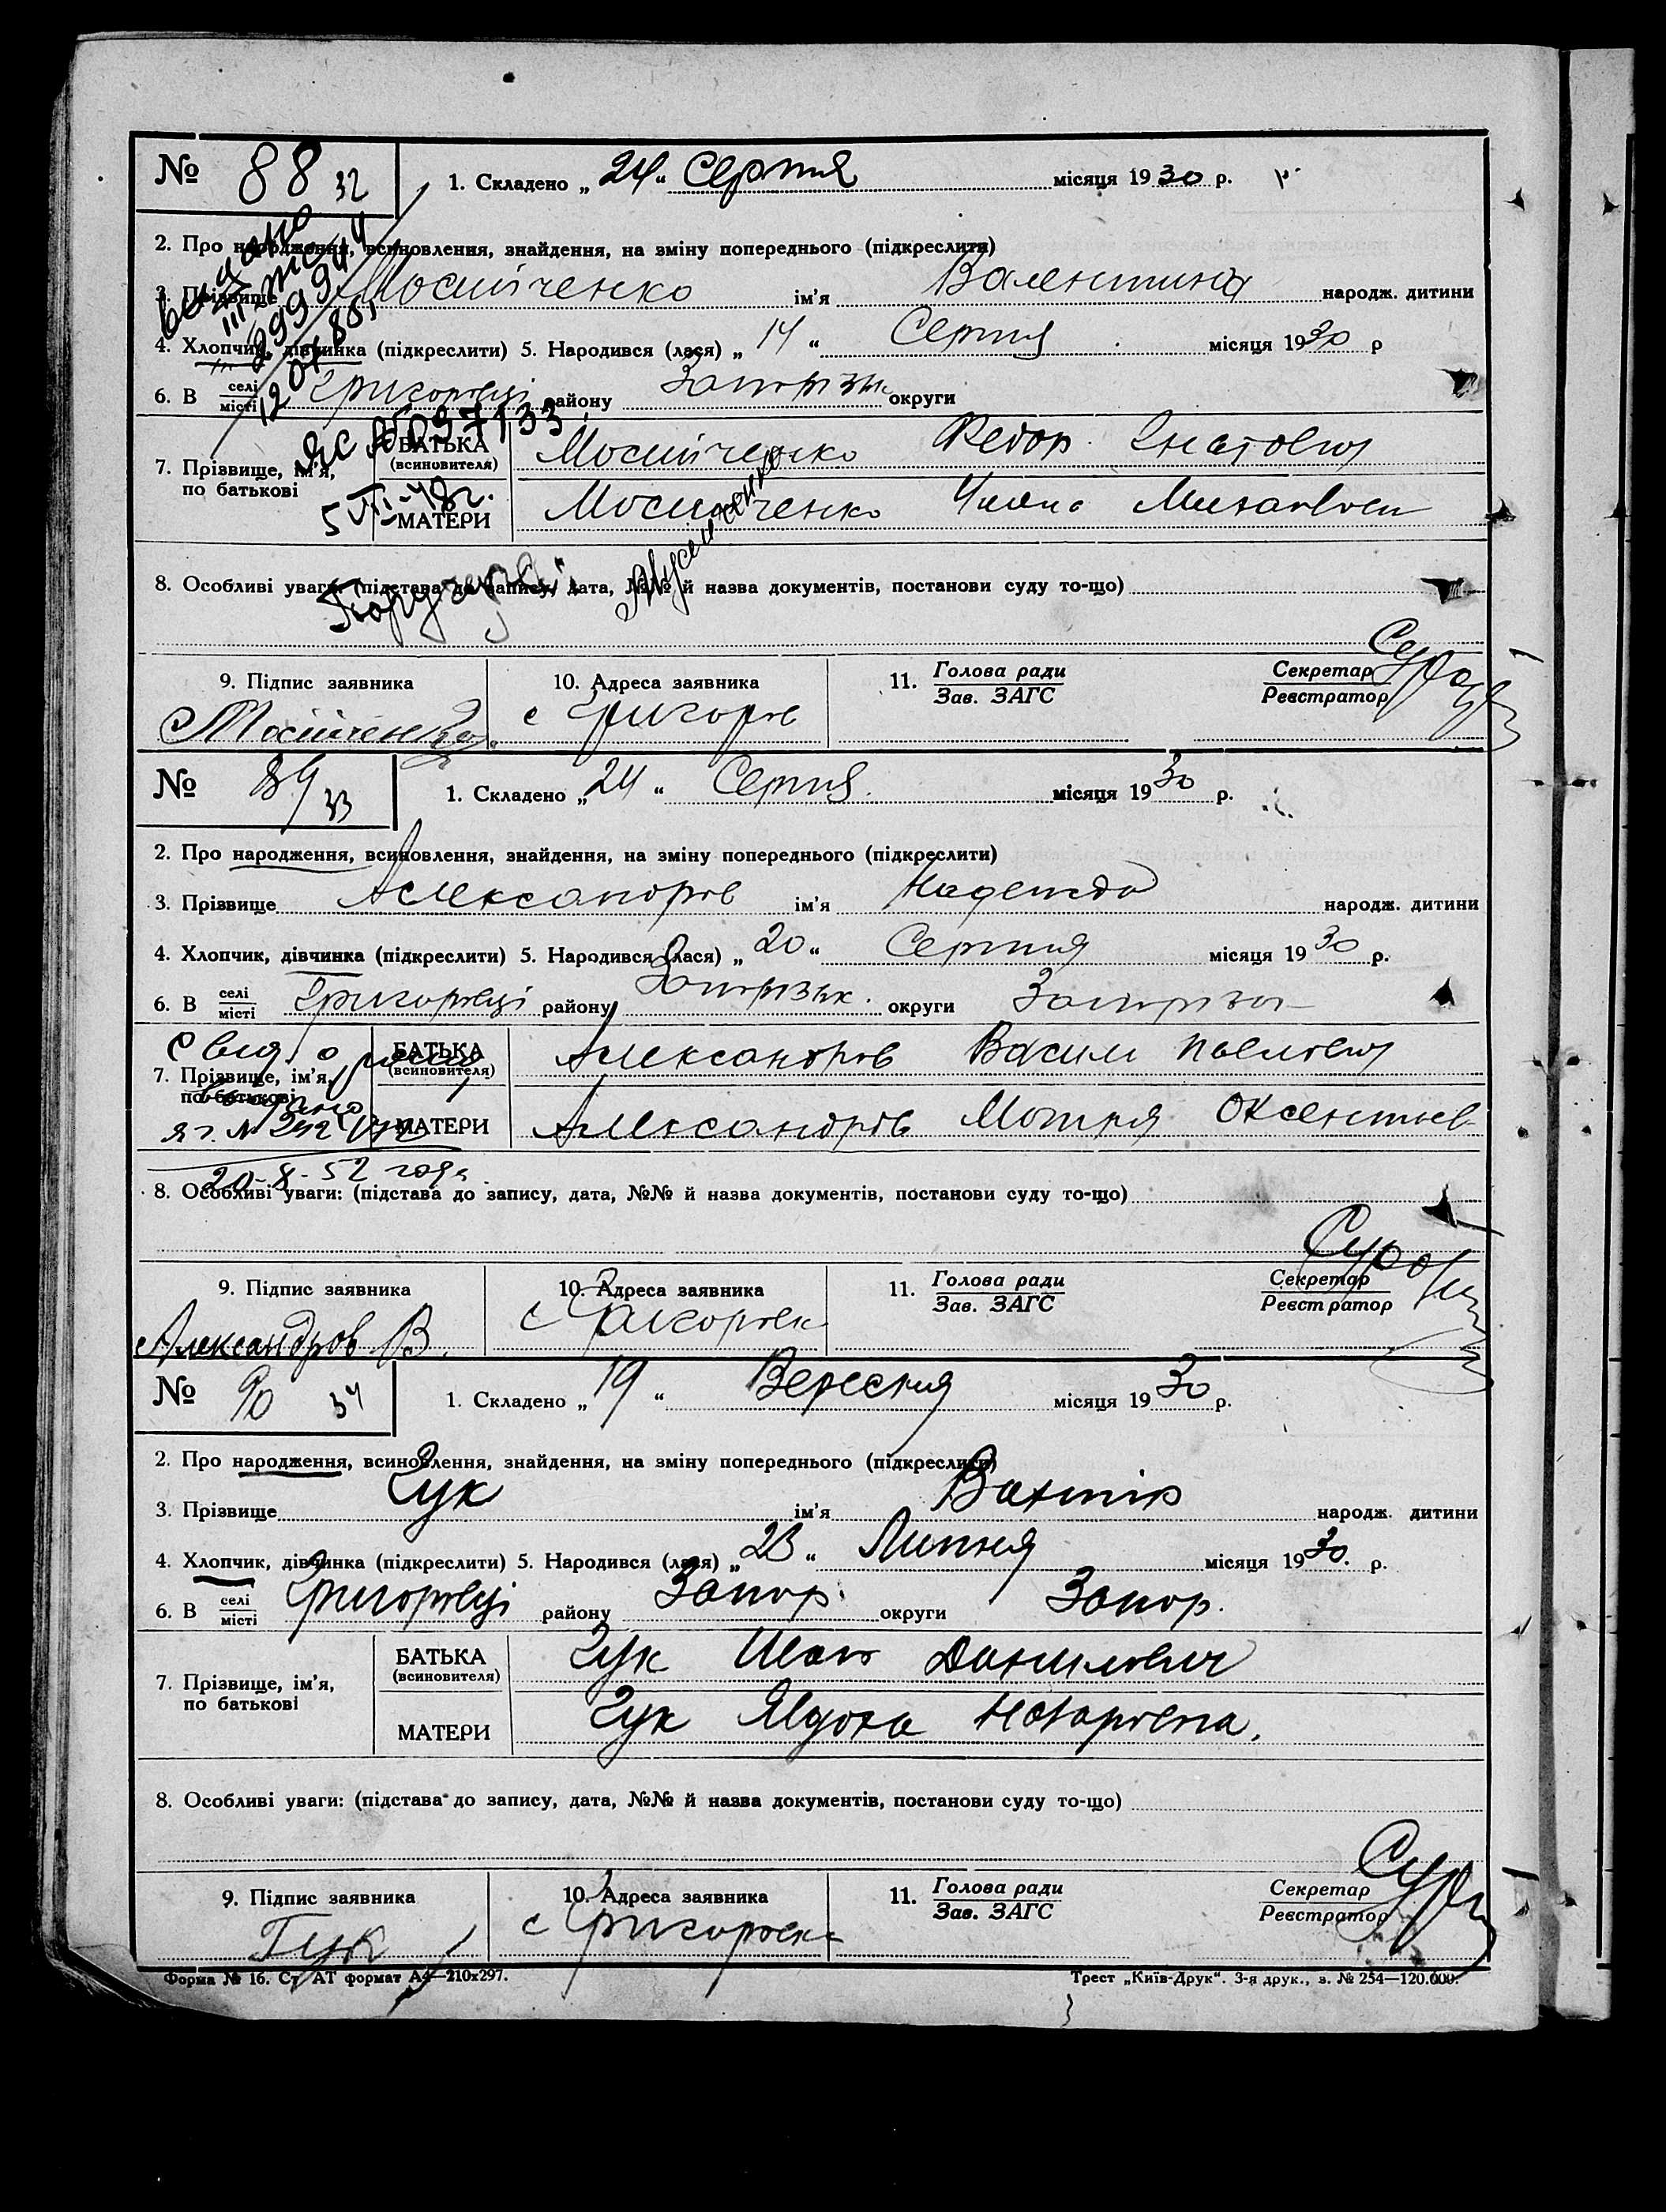 № 88 32
1. Складено „24“ Серпня місяця 1930 р.
2. Про народження, всиновлення, знайдення, на зміну попереднього (підкреслити)
3. Прізвище Мосийченко ім'я Валентина народж. дитини
4. Хлопчик, дівчинка (підкреслити) 5. Народився (лася) „14“ Серпня місяця 1930 р
6. В селі/місті Григоровці району Запорізьк округи
видано
299944
12 04 85
ЯС № 097133
5 VII-48г.
7. Прізвище, ім'я, по батькові
БАТЬКА (всиновителя) Мосийченко Федор Гнатович
МАТЕРИ Мосийченко
8. Особливі уваги: (підстава до запису, дата, №№ й назва документів, постанови суду то-що)
9. Підпис заявника
10. Адреса заявника
11. Голова ради
Зав. ЗАГС
Секретар
Реєстратор
Мосійченко
с Григоров
№ 89 33
1. Складено „24“ Серпня місяця 1930 р.
2. Про народження, всиновлення, знайдення, на зміну попереднього (підкреслити)
3. Прізвище Александров ім'я Надежда народж. дитини
4. Хлопчик, дівчинка (підкреслити) 5. Народився (лася) „20“ Серпня місяця 1930 р.
6. В селі/місті Григоровці району Запорізьк. округи
7. Прізвище, ім'я, по батькові
БАТЬКА (всиновителя) Александров Васил Павлович
МАТЕРИ Александров Мотря Оксентьев
20-8-52 года
8. Особливі уваги: (підстава до запису, дата, №№ й назва документів, постанови суду то-що)
9. Підпис заявника
10. Адреса заявника
11. Голова ради
Зав. ЗАГС
Секретар
Реєстратор
Александров В.
с Григоровк
№ 90 34
1. Складено „19“ Вересня місяця 1930 р.
2. Про народження, всиновлення, знайдення, на зміну попереднього (підкреслити)
3. Прізвище Гук ім'я народж. дитини
4. Хлопчик, дівчинка (підкреслити) 5. Народився (лася) „23“ Липня місяця 1930. р.
6. В селі/місті Григоровці району Запор. округи Запор.
7. Прізвище, ім'я, по батькові
БАТЬКА (всиновителя) Гук Иван Данилович
МАТЕРИ Гук Явдоха Назаровна.
8. Особливі уваги: (підстава до запису, дата, №№ й назва документів, постанови суду то-що)
9. Підпис заявника
10. Адреса заявника
11. Голова ради
Зав. ЗАГС
Секретар
Реєстратор
Гук
с Григоровка
Форма № 16. Ст. АТ формат А4—210х297.
Трест „Київ-Друк“. 3-я друк., з. № 254—120.000.